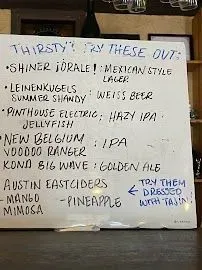 THIRSTY? TRY THESE OUT:
• SHINER ¡ORALE! : MEXICAN STYLE
LAGER
• LEINENKUGELS : WEISS BEER
SUMMER SHANDY
• PINTHOUSE ELECTRIC : HAZY IPA
JELLYFISH
• NEW BELGIUM : IPA
VOODOO RANGER
KONA BIG WAVE : GOLDEN ALE
AUSTIN EASTCIDERS
- MANGO - PINEAPPLE
MIMOSA
← TRY THEM
DRESSED
WITH TAJIN